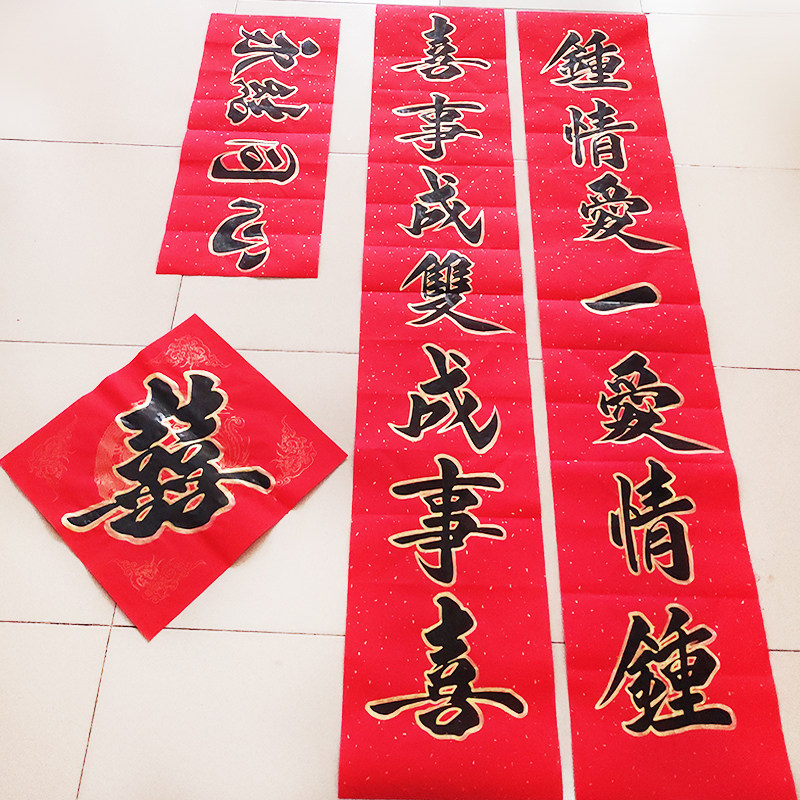 鍾情愛一愛情鍾
喜事成雙成事喜
永結同心
囍